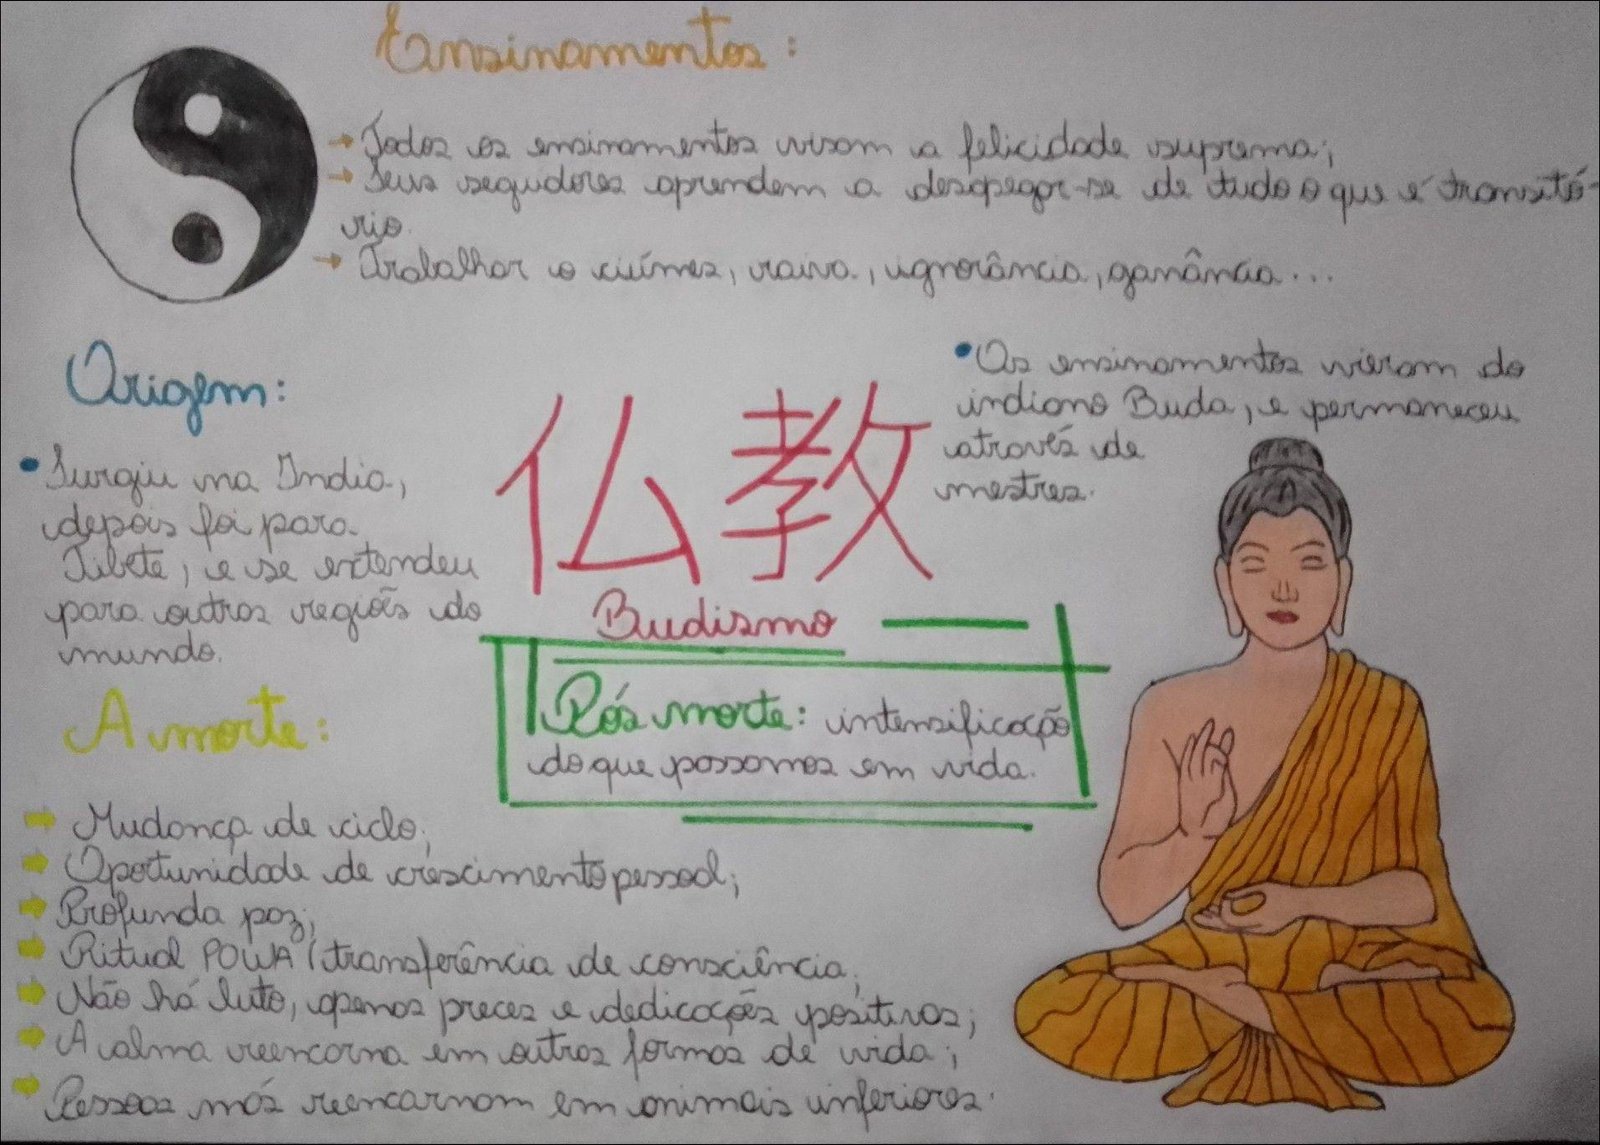 Ensinamentos:
→ Todos os ensinamentos visam a felicidade suprema;
→ Seus seguidores aprendem a desapegar-se de tudo o que é transitó-
rio.
→ Trabalhar o ciúmes, raiva, ignorância, ganância...
Origem:
• Surgiu na Índia,
depois foi para
Tibete, e se extendeu
para outras regiões do
mundo.
• Os ensinamentos vieram do
indiano Buda, e permaneceu
através de
mestres.
仏教
Budismo
Pós morte: intensificação
do que possamos em vida.
A morte:
Mudança de ciclo;
Oportunidade de crescimento pessoal;
Profunda paz;
Ritual POWA (transferência de consciência;
Não há luto, apenas preces e dedicações positivas;
A alma reencarna em outras formas de vida;
Pessoas más reencarnam em animais inferiores.